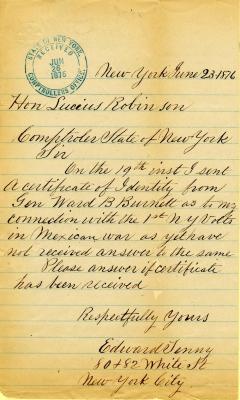 STATE OF NEW YORK
RECEIVED
JUN
1876
COMPTROLLERS OFFICE
New York June 23 1876
Hon Lucius Robinson
Comptroler State of New York
Sir
On the 19th inst I sent
A certificate of Identity from
Gen Ward B Burnett as to my
connection with the 1st N Y Volts
in Mexican war as yet have
not received answer to the same
Please answer if certificate
has been received
Respectfully Yours
Edward Tenny
80 & 82 White St
New York City